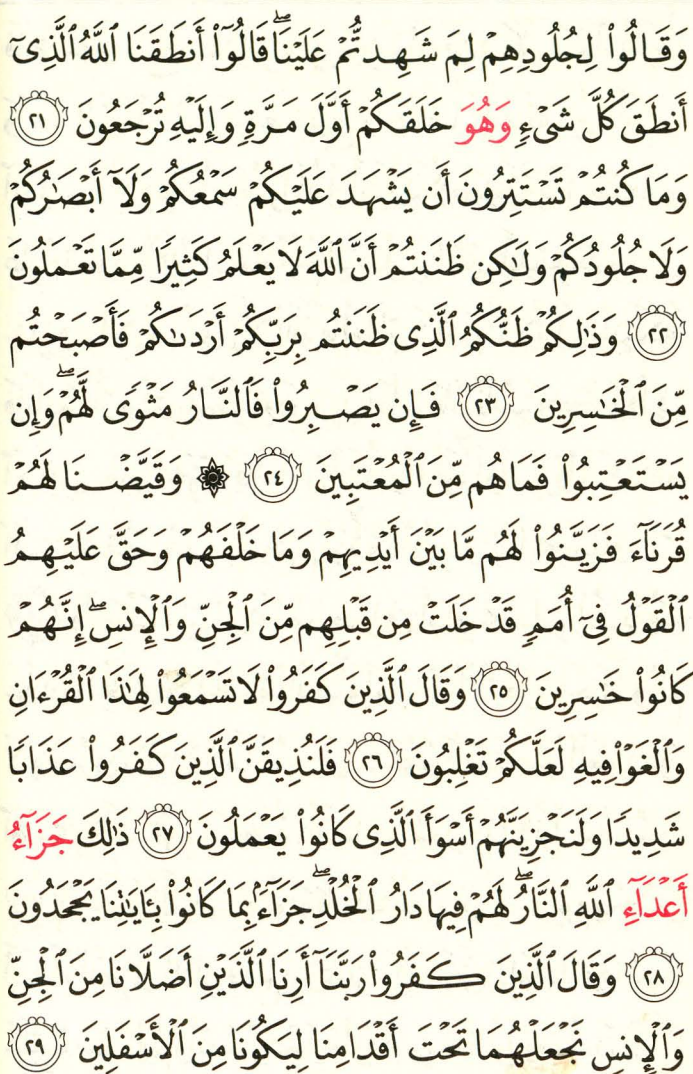 وَقَالُوا۟ لِجُلُودِهِمْ لِمَ شَهِدتُّمْ عَلَيْنَا ۖ قَالُوٓا۟ أَنطَقَنَا ٱللَّهُ ٱلَّذِىٓ
أَنطَقَ كُلَّ شَىْءٍ وَهُوَ خَلَقَكُمْ أَوَّلَ مَرَّةٍ وَإِلَيْهِ تُرْجَعُونَ ٢١
وَمَا كُنتُمْ تَسْتَتِرُونَ أَن يَشْهَدَ عَلَيْكُمْ سَمْعُكُمْ وَلَآ أَبْصَٰرُكُمْ
وَلَا جُلُودُكُمْ وَلَٰكِن ظَنَنتُمْ أَنَّ ٱللَّهَ لَا يَعْلَمُ كَثِيرًا مِّمَّا تَعْمَلُونَ
٢٢ وَذَٰلِكُمْ ظَنُّكُمُ ٱلَّذِى ظَنَنتُم بِرَبِّكُمْ أَرْدَىٰكُمْ فَأَصْبَحْتُم
مِّنَ ٱلْخَٰسِرِينَ ٢٣ فَإِن يَصْبِرُوا۟ فَٱلنَّارُ مَثْوًى لَّهُمْ ۖ وَإِن
يَسْتَعْتِبُوا۟ فَمَا هُم مِّنَ ٱلْمُعْتَبِينَ ٢٤ ۞ وَقَيَّضْنَا لَهُمْ
قُرَنَآءَ فَزَيَّنُوا۟ لَهُم مَّا بَيْنَ أَيْدِيهِمْ وَمَا خَلْفَهُمْ وَحَقَّ عَلَيْهِمُ
ٱلْقَوْلُ فِىٓ أُمَمٍ قَدْ خَلَتْ مِن قَبْلِهِم مِّنَ ٱلْجِنِّ وَٱلْإِنسِ ۖ إِنَّهُمْ
كَانُوا۟ خَٰسِرِينَ ٢٥ وَقَالَ ٱلَّذِينَ كَفَرُوا۟ لَا تَسْمَعُوا۟ لِهَٰذَا ٱلْقُرْءَانِ
وَٱلْغَوْا۟ فِيهِ لَعَلَّكُمْ تَغْلِبُونَ ٢٦ فَلَنُذِيقَنَّ ٱلَّذِينَ كَفَرُوا۟ عَذَابًا
شَدِيدًا وَلَنَجْزِيَنَّهُمْ أَسْوَأَ ٱلَّذِى كَانُوا۟ يَعْمَلُونَ ٢٧ ذَٰلِكَ جَزَآءُ
أَعْدَآءِ ٱللَّهِ ٱلنَّارُ ۖ لَهُمْ فِيهَا دَارُ ٱلْخُلْدِ ۖ جَزَآءًۢ بِمَا كَانُوا۟ بِـَٔايَٰتِنَا يَجْحَدُونَ
٢٨ وَقَالَ ٱلَّذِينَ كَفَرُوا۟ رَبَّنَآ أَرِنَا ٱلَّذَيْنِ أَضَلَّانَا مِنَ ٱلْجِنِّ
وَٱلْإِنسِ نَجْعَلْهُمَا تَحْتَ أَقْدَامِنَا لِيَكُونَا مِنَ ٱلْأَسْفَلِينَ ٢٩